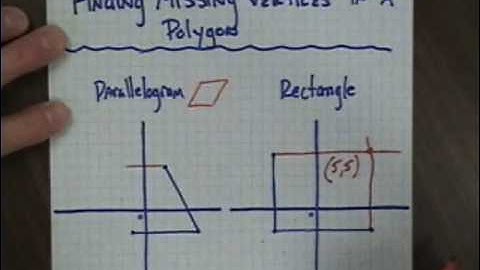 Finding Missing Vertices in A
Polygon
Parallelogram
Rectangle
(5,5)